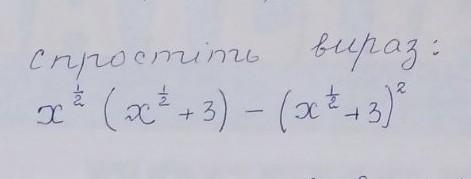 спростіть вираз:
x^{\frac{1}{2}} (x^{\frac{1}{2}} + 3) - (x^{\frac{1}{2}} + 3)^2